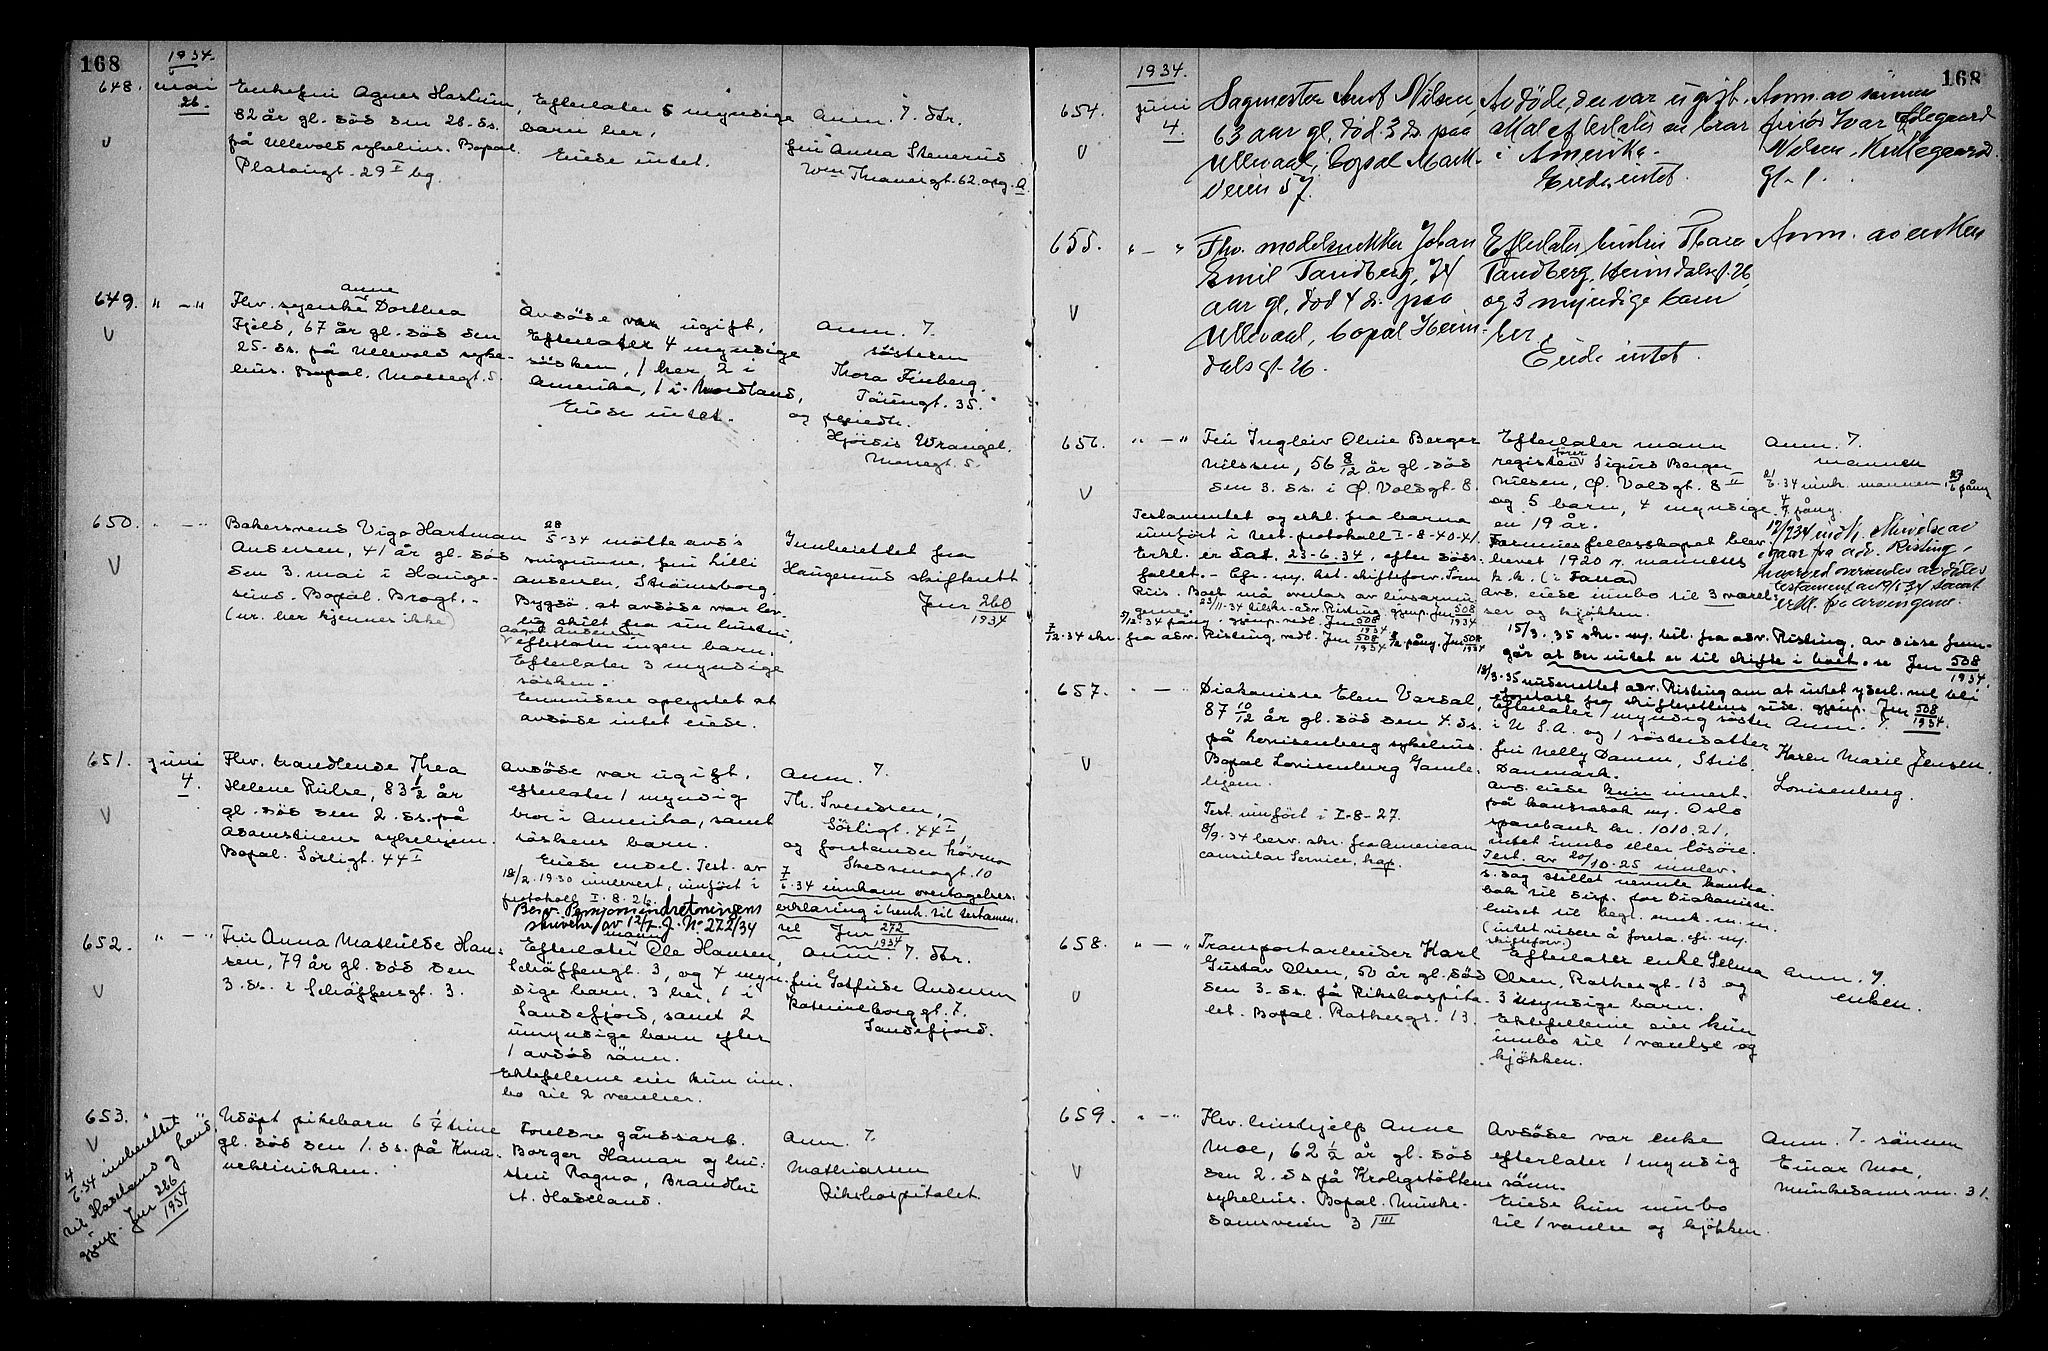 168
1934.
648. mai 26.
Enkefru Agnes Haslum,
82 år gl. död den 26. ds.
på Ullevold sykehus. Bopæl.
Platousgt. 29 I bg.
Efterlater 5 myndige
barn her.
Eiede intet.
Anm. 7. dtr.
fru Anna Stenerud
Wm Thranesgt. 62. opg. A
649. " — "
Fhv. syerske Anne Dorthea
Fjeld, 67 år gl. död den
25. ds. på Ullevold syke-
hus. Bopæl. Mossegt. 5.
Avdöde var ugift.
Efterlater 4 myndige
sösken, 1 her, 2 i
Amerika, 1 i Nordland,
Eiede intet.
Anm. 7.
sösteren
Thora Finberg.
Töiengt. 35.
og
Hjördis Wrangel.
Mossegt. 5.
650. " — "
Bakersvend Vigo Hartman
Andersen, 41 år gl. död
den 3. mai i Hauge-
sund. Bopæl. Brogt. -
(nr. her kjennes ikke)
28/5-34 mötte avd's
svigerinne, fru Lilli
Andersen, Strömsborg
Bygdö, at avdöde var lov-
lig skilt fra sin hustru,
Aagot Andersen
efterlater ingen barn.
Efterlater 3 myndige
sösken.
oplyste at
avdöde intet eiede.
Innberettet fra
Haugesund skifterett
Jnr 260/1934
651. juni 4.
Fhv. handlende Thea
Helene Rulse, 83 1/2 år
gl. död den 2. ds. på
Adamstuens sykehjem.
Bopæl. Sörligt. 44 I
Avdöde var ugift,
efterlater 1 myndig
bror i Amerika, samt
söskens barn.
Eiede endel. Test. av
18/2.1930 innlevert, innfört i
protokoll I. 8. 26.
Besv. Pensjonsindretningens
skrivelse av 12/7 J. No 272/34
Anm. 7.
Th. Svendsen,
Sörligt. 44 I,
og forstander Lövmo
Skedsmogt. 10
7/6.34 innkom overtagelses-
erklæring i henh. til testamen-
tet Jnr 272/1934
652. " — "
Fru Anna Mathilde Han-
sen, 79 år gl. död den
3. ds. i Schöffersgt. 3.
Efterlater mann Ole Hansen,
Schöffersgt. 3, og 4 myn-
dige barn. 3 her, 1 i
Sandefjord, samt 2
umyndige barn efter
1 avdöd sönn.
Ektefellene eier kun inn-
bo til 2 værelser.
Anm. 7. dtr.
fru Gotfride Andersen
gt. 7.
Sandefjord.
653.
4/6.34 innberettet
til Hadeland og Land.
gjenp. Jnr 266/1934
Udöpt pikebarn 6 1/4 time
gl. död den 1. ds. på Kvin-
neklinikken.
Foreldre gårdsarb.
Borger Hamar og hu-
stru Ragna, Brandbu
st. Hadeland.
Anm. 7.
Mathiassen
Rikshospitalet.
168
1934.
654. juni 4.
Sagmester Amt Nilsen,
63 aar gl, död 3 ds. paa
Ullevaal, bopæl Mark-
veien 57.
Avdöde, der var ugift.
efterlater en bror
i Amerika.
Eiede intet.
Anm. av sönnen
Ivar Ödegaard
Nilsen, Möllegaards
gt. 1.
655. " — "
Fhv. modelsnekker Johan
Emil Tandberg, 74
aar gl, död 4 ds. paa
Ullevaal, bopæl Heim-
dalsgt. 26.
Efterlater hustru Thora
Tandberg, Heimdalsgt. 26,
og 3 myndige barn
her,
Eiede intet.
Anm. av enken
656. " — "
Fru Ingleiv Olive Berger
Nilssen, 56 8/12 år gl. död
den 3. ds. i Ø. Voldgt. 8.
Testamentet og erkl. fra barna
innfört i test. protokoll I-8-40-41.
Erkl. er dat. 23-6.34, efter döds-
fallet. - Cfr. ny.
Riis. Boet må overtas av livsarvin-
gene. 23/11-34 tilskr. adv. Risting gjenp. Jnr 508/1934
5/12 34 påny. gjenp. vedl. Jnr 508/1934
7/12.34 skr. fra adv. Risting, vedl. Jnr 508/1934 påny. Jnr 508/1934
Efterlater mann
registerförer Sigurd Berger
Nilsen, Ø. Voldgt. 8 II
og 5 barn, 4 myndige
en 19 år.
Særeiefellesskapet blev
hevet 1920 v. mannens
k. k. (i Tana)
Avd. eiede innbo til 3 værel-
ser og kjökken.
15/3.35 skr. ny. bil. fra adv. Risting, av disse frem-
går at der intet er til skifte i boet. se Jnr 508/1934.
18/3-35 underrettet adv. Risting om at intet yderl. vil bli
foretatt fra skifterettens side. gjenp. Jnr 508/1934.
Anm. 7.
mannen
21/6.34 innk. mannen, 27/6 påny
4/7 påny.
12/7 34 indk. skrivelse av
igaar fra adv. Risting,
hvorved oversendes avdödes
testament av 9/1 34 samt
erkl. fra arvingene.
657. " — "
Diakonisse Elen Varsal,
87 10/12 år gl. död den 4. ds.
på Lovisenberg sykehus.
Bopæl Lovisenberg Gamle-
hjem.
Test. innfört i I-8-27.
8/9.34 besv. skr. fra American
consular Service, kap.
Efterlater 1 myndig söster
i U.S.A. og 1 sösterdatter
fru Nelly Damm, Strib.
Danmark.
Avd. eiede kun innest.
på bankbok ny. Oslo
sparebank kr. 1010.21,
intet innbo eller lösöre.
Test. av 20/10-25 innlev.
s. dag stillet nevnte bank-
bok til disp. for Diakonisse-
huset til begr. omk. m. m.
(intet videre å foreta. cfr. ny.
skifteforv.)
Anm. 7.
Karen Marie Jensen.
Lovisenberg.
658. " — "
Transportarbeider Karl
Gustav Olsen, 50 år gl. död
den 3. ds. på Rikshospita-
let. Bopæl. Rathesgt. 13.
Efterlater enke Selma
Olsen, Rathesgt. 13 og
3 umyndige barn.
Ektefellene eier kun
innbo til 1 værelse og
kjökken.
Anm. 7.
enken.
659. " — "
Fhv. hushjelp Anne
Moe, 62 1/2 år gl. död
den 2. ds på Krohgstötten
sykehus. Bopæl. Munke-
damsveien 3 III
Avdöde var enke
efterlater 1 myndig
sönn.
Eiede kun innbo
til 1 værelse og kjökken.
Anm. 7. sönnen
Einar Moe,
Munkedamsvn. 31.